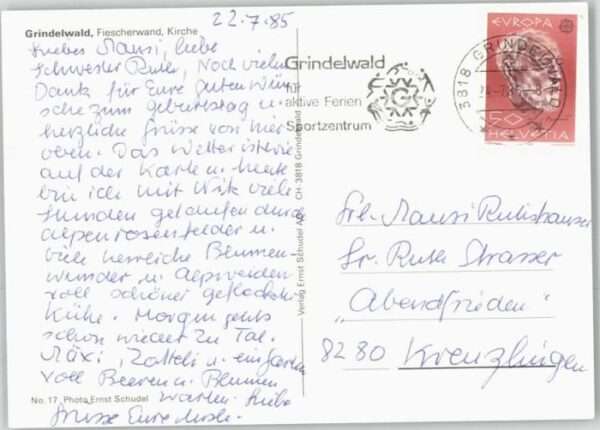 22.7.85
Grindelwald, Fiescherwand, Kirche
Liebes Mausi, liebe
Schwester Ruth, Noch vielen
Dank für Eure guten Wün
sche zum Geburtstag u.
herzliche Grüsse von hier
oben. Das Wetter ist wie
auf der Karte u. heute
bin ich mit viele
Stunden gelaufen durch
Alpenrosenfelder u.
viele herrliche Blumen-
wunder u. Alpweiden
voll schöner gefleckter
Kühe. Morgen gehts
schon wieder zu Tal.
Mäxi, Zotteli u. ein Garten
voll Beeren u. Blumen
warten. Liebe
Grüsse Eure
No. 17 Photo Ernst Schudel
Verlag Ernst Schudel CH-3818 Grindelwald
Grindelwald
für
aktive Ferien
Sportzentrum
G
3818 GRINDELWALD
EUROPA
50
HELVETIA
Frl. Mausi
Sr. Ruth Strasser
"Abendfrieden"
8280 Kreuzlingen